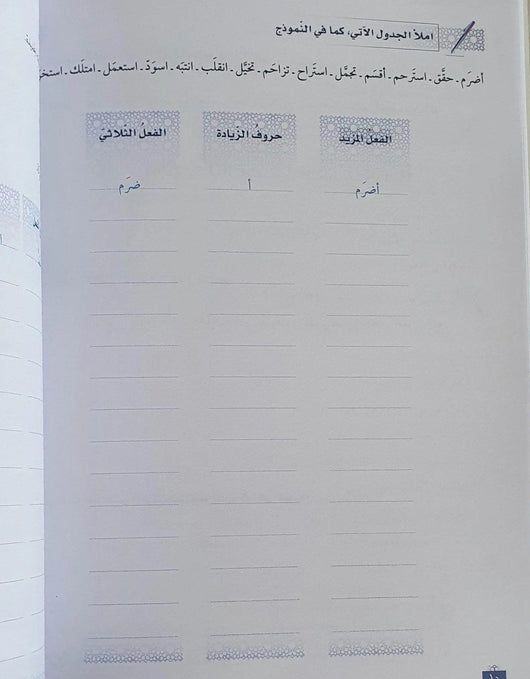 املأ الجدول الآتي، كما في النّموذج
أضرَم - حقَّق - استَرحم - أقسَم - تجمَّل - استَراح - تزاحَم - تخيَّل - انقلَب - انتبَه - اسوَدّ - استعمَل - امتلَك -
الفعلُ المَزيد
حروفُ الزّيادة
الفعلُ الثّلاثيّ
أضرَم
أ
ضرَم
١٠